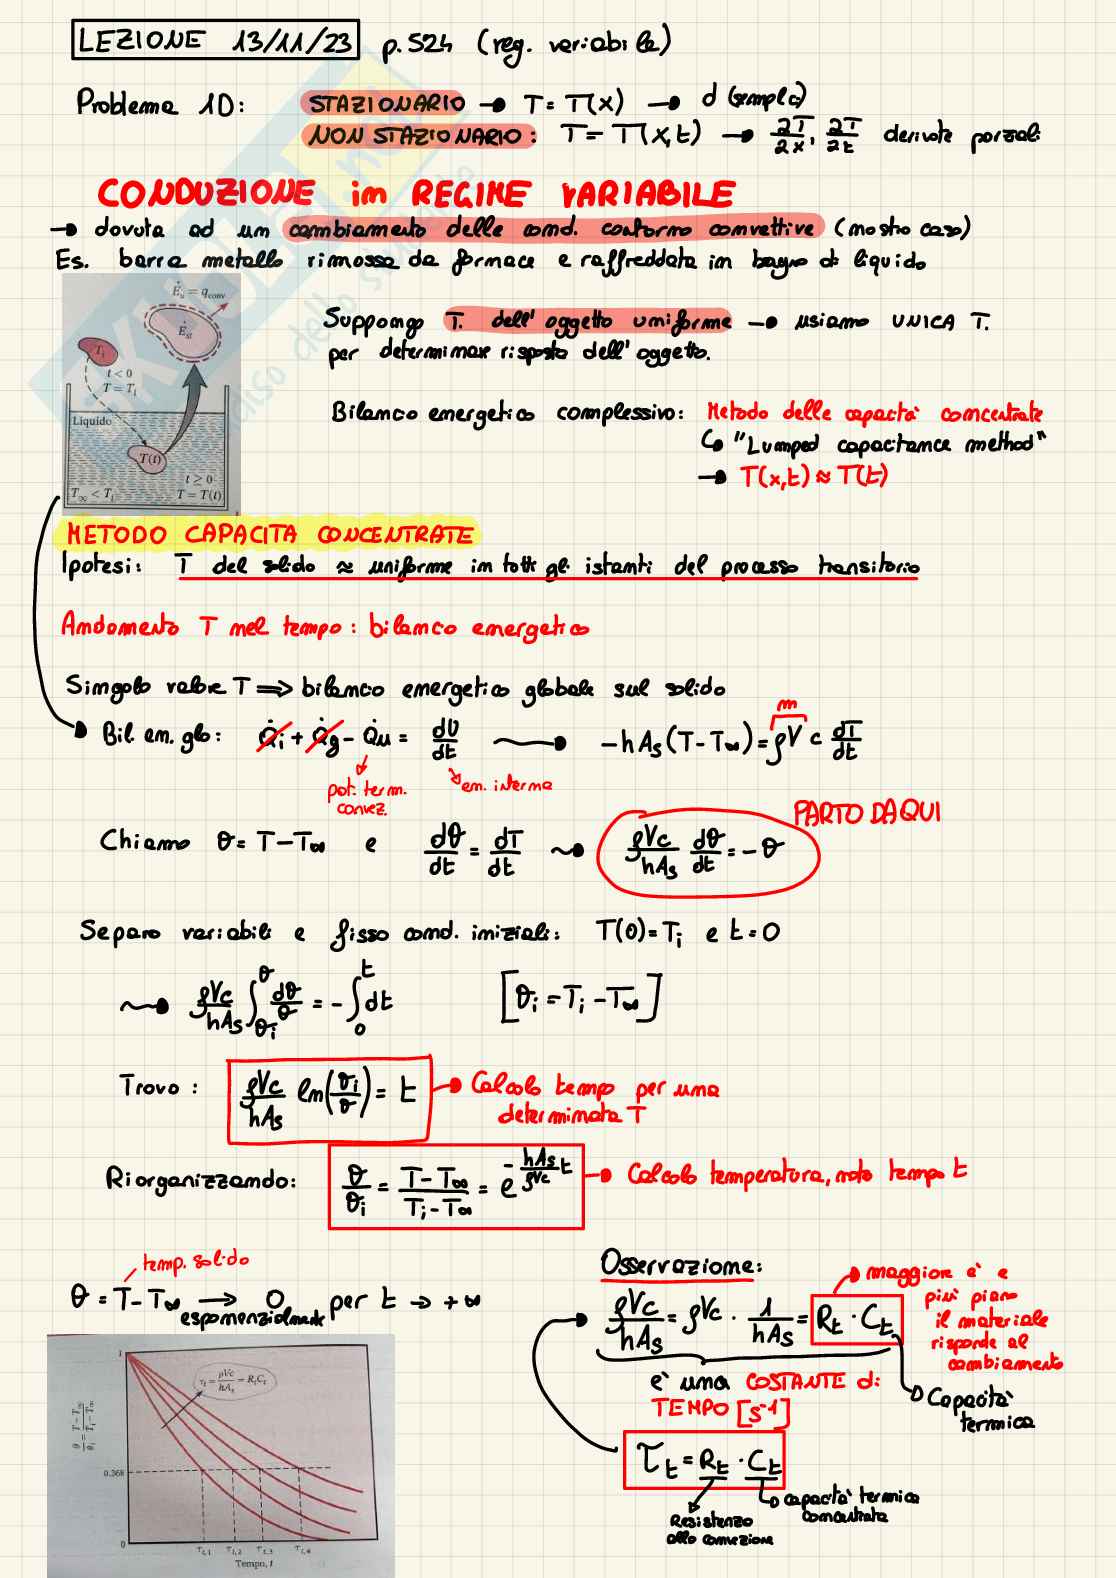 LEZIONE 13/11/23 p. 524 (reg. variabile)
Problema 1D: STAZIONARIO → T = T(x) → d (semplice)
NON STAZIONARIO: T = T(x,t) → ∂T/∂x, ∂T/∂t derivate parziali
CONDUZIONE in REGIME VARIABILE
→ dovuta ad un cambiamento delle cond. contorno convettive (nostro caso)
Es. barra metallo rimossa da fornace e raffreddata in bagno di liquido
Ėu = qconv
Ėst
Ti
t < 0
T = Ti
Liquido
T(t)
t ≥ 0
T∞ < Ti
T = T(t)
Suppongo T. dell'oggetto uniforme → usiamo UNICA T.
per determinare risposta dell'oggetto.
Bilancio energetico complessivo: Metodo delle capacità concentrate
↳ "Lumped capacitance method"
→ T(x,t) ≈ T(t)
METODO CAPACITA CONCENTRATE
Ipotesi: T del solido ≈ uniforme in tutti gli istanti del processo transitorio
Andamento T nel tempo: bilancio energetico
Singolo valore T ⇒ bilancio energetico globale sul solido
Bil. en. glo: Q̇i + Q̇g - Q̇u = dU/dt → -hAs(T - T∞) = ρVc dT/dt
m
pot. term. convez.
en. interna
Chiamo θ = T - T∞ e dθ/dt = dT/dt ⇝ ρVc/hAs dθ/dt = -θ
PARTO DA QUI
Separo variabili e fisso cond. iniziali: T(0) = Ti e t = 0
⇝ ρVc/hAs ∫θi^θ dθ/θ = -∫0^t dt [θi = Ti - T∞]
Trovo: ρVc/hAs ln(θi/θ) = t → Calcolo tempo per una
determinata T
Riorganizzando: θ/θi = (T - T∞)/(Ti - T∞) = e^(-hAs/ρVc t) → Calcolo temperatura, noto tempo t
temp. solido
θ = T - T∞ → 0 per t → +∞
esponenzialmente
1
τt = ρVc/hAs = RtCt
θ/θi = (T - T∞)/(Ti - T∞)
0.368
0
τt,1 τt,2 τt,3 τt,4
Tempo, t
Osservazione:
ρVc/hAs = ρVc · 1/hAs = Rt · Ct
maggiore è e
più piano
il materiale
risponde al
cambiamento
Capacità
termica
è una COSTANTE di
TEMPO [s-1]
τt = Rt · Ct
Resistenza
alla convezione
capacità termica
concentrata